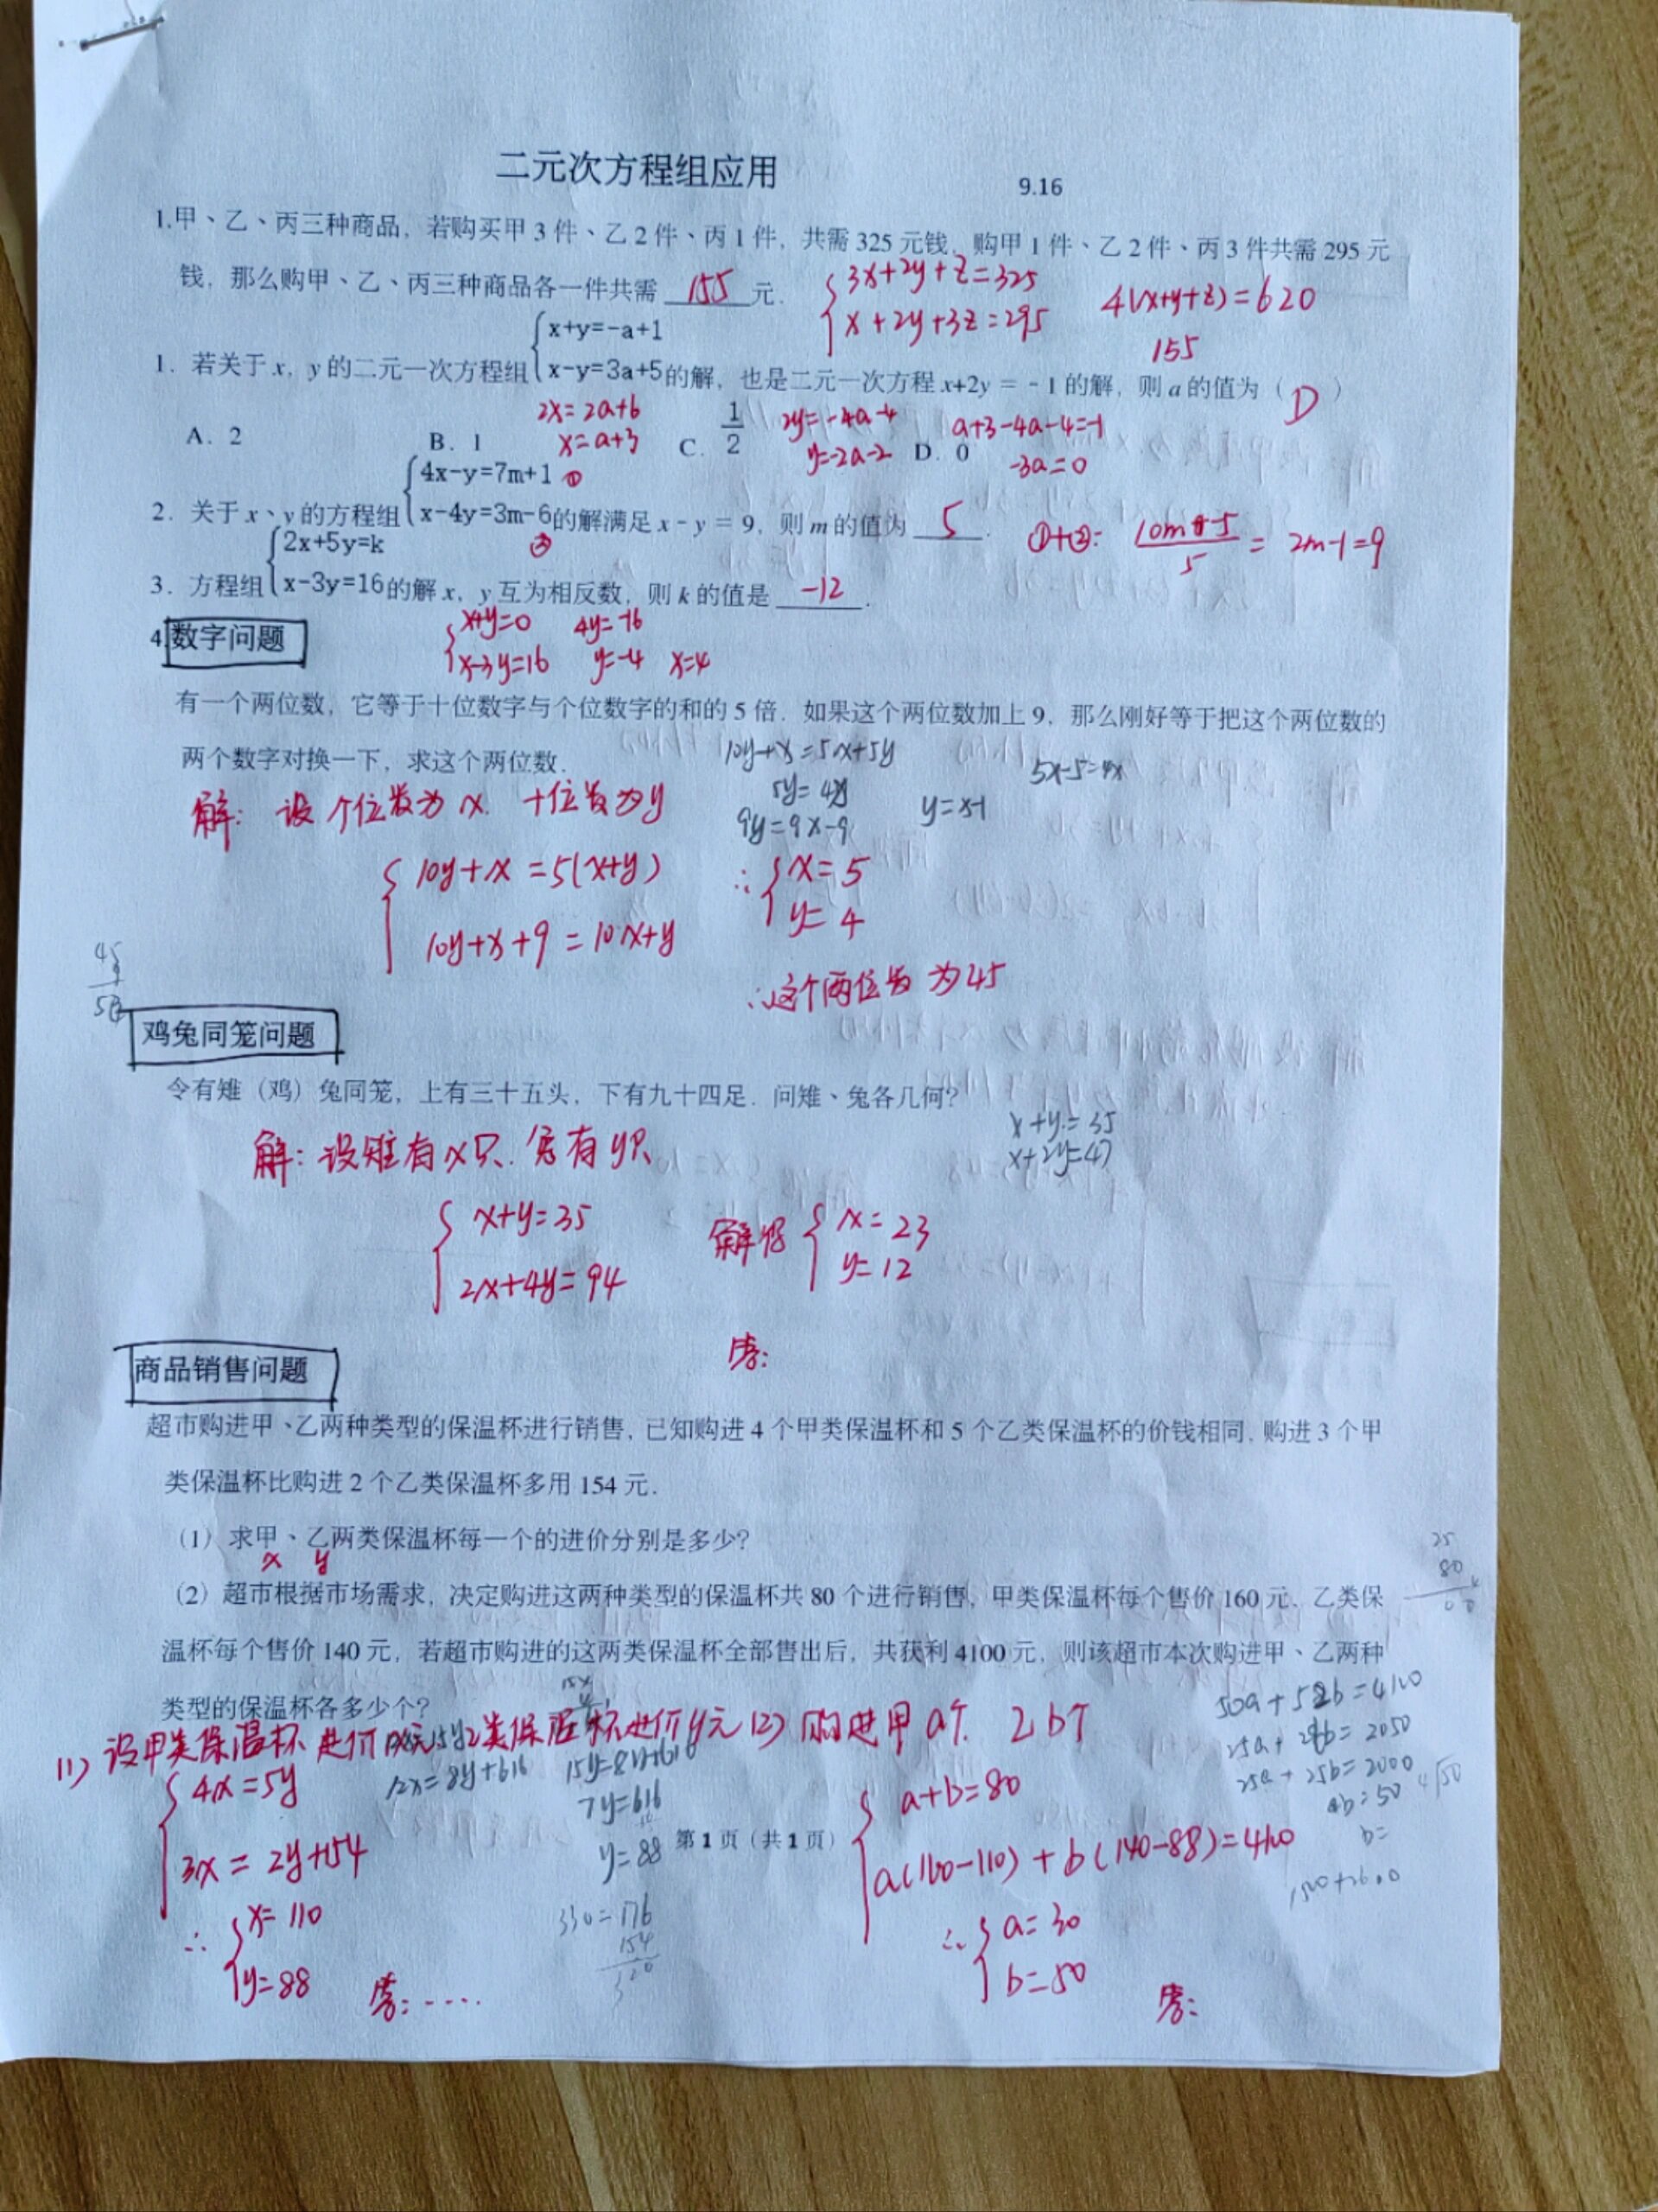 二元次方程组应用
9.16
1.甲、乙、丙三种商品，若购买甲 3 件、乙 2 件、丙 1 件，共需 325 元钱，购甲 1 件、乙 2 件、丙 3 件共需 295 元
钱，那么购甲、乙、丙三种商品各一件共需 155 元．
3x+2y+z=325
x+2y+3z=295
4(x+y+z)=620
155
x+y=-a+1
1．若关于 x，y 的二元一次方程组 x-y=3a+5的解，也是二元一次方程 x+2y = - 1 的解，则 a 的值为（ D ）
2x=2a+6
x=a+3
2y=-4a-4
y=-2a-2
a+3-4a-4=-1
-3a=0
A．2 B．1 C．1/2 D．0
4x-y=7m+1 ①
2．关于 x、y 的方程组 x-4y=3m-6的解满足 x - y = 9，则 m 的值为 5 ．
②
①+②: 10m-5/5 = 2m-1=9
2x+5y=k
3．方程组 x-3y=16的解 x，y 互为相反数，则 k 的值是 -12 ．
x+y=0 4y=-16
x-3y=16 y=-4 x=4
4.数字问题
有一个两位数，它等于十位数字与个位数字的和的 5 倍．如果这个两位数加上 9，那么刚好等于把这个两位数的
两个数字对换一下，求这个两位数．
10y+x=5x+5y
5y=4x
9y=9x-9
y=x-1
5x-5=4x
解：设个位数为x．十位数为y
10y+x=5(x+y)
10y+x+9=10x+y
∴ x=5
y=4
∴这个两位数为45
鸡兔同笼问题
令有雉（鸡）兔同笼，上有三十五头，下有九十四足．问雉、兔各几何？
x+y=35
x+2y=47
解：设雉有x只．兔有y只
x+y=35
2x+4y=94
解得 x=23
y=12
答：
商品销售问题
超市购进甲、乙两种类型的保温杯进行销售，已知购进 4 个甲类保温杯和 5 个乙类保温杯的价钱相同，购进 3 个甲
类保温杯比购进 2 个乙类保温杯多用 154 元．
（1）求甲、乙两类保温杯每一个的进价分别是多少？
x y
（2）超市根据市场需求，决定购进这两种类型的保温杯共 80 个进行销售，甲类保温杯每个售价 160 元、乙类保
温杯每个售价 140 元，若超市购进的这两类保温杯全部售出后，共获利 4100 元，则该超市本次购进甲、乙两种
类型的保温杯各多少个？
(1) 设甲类保温杯进价x元 乙类保温杯进价y元 (2) 购进甲a个．乙b个
4x=5y
3x=2y+154
∴ x=110
y=88
答：····
12x=8y+616
15y=8y+616
7y=616
y=88
330=176
154
第 1 页（共 1 页）
a+b=80
a(160-110)+b(140-88)=4100
∴ a=30
b=50
答：
50a+52b=4100
25a+26b=2050
25a+25b=2000
b=50
b=
1500+2600